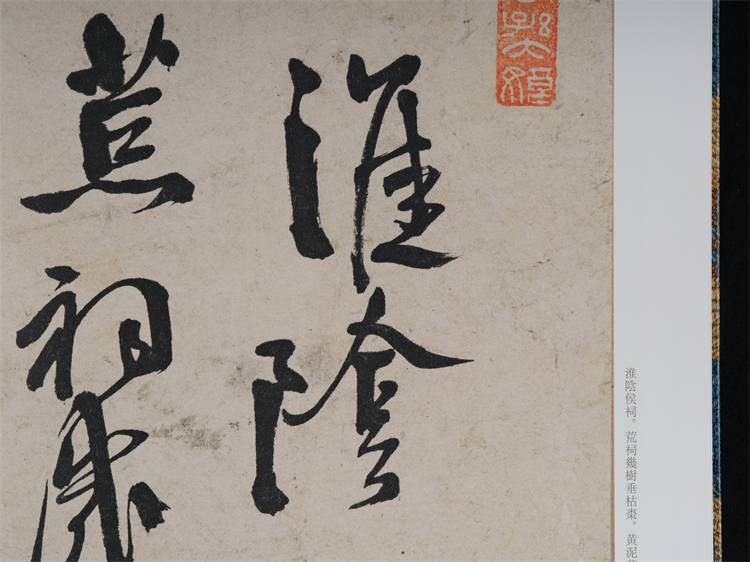 淮陰侯祠。荒祠幾樹垂枯棗。黄泥
淮陰
荒祠幾